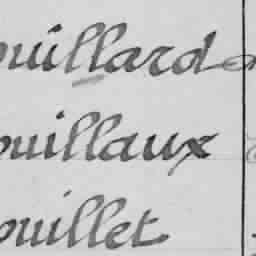 ouillard
ouillaux
ouillet